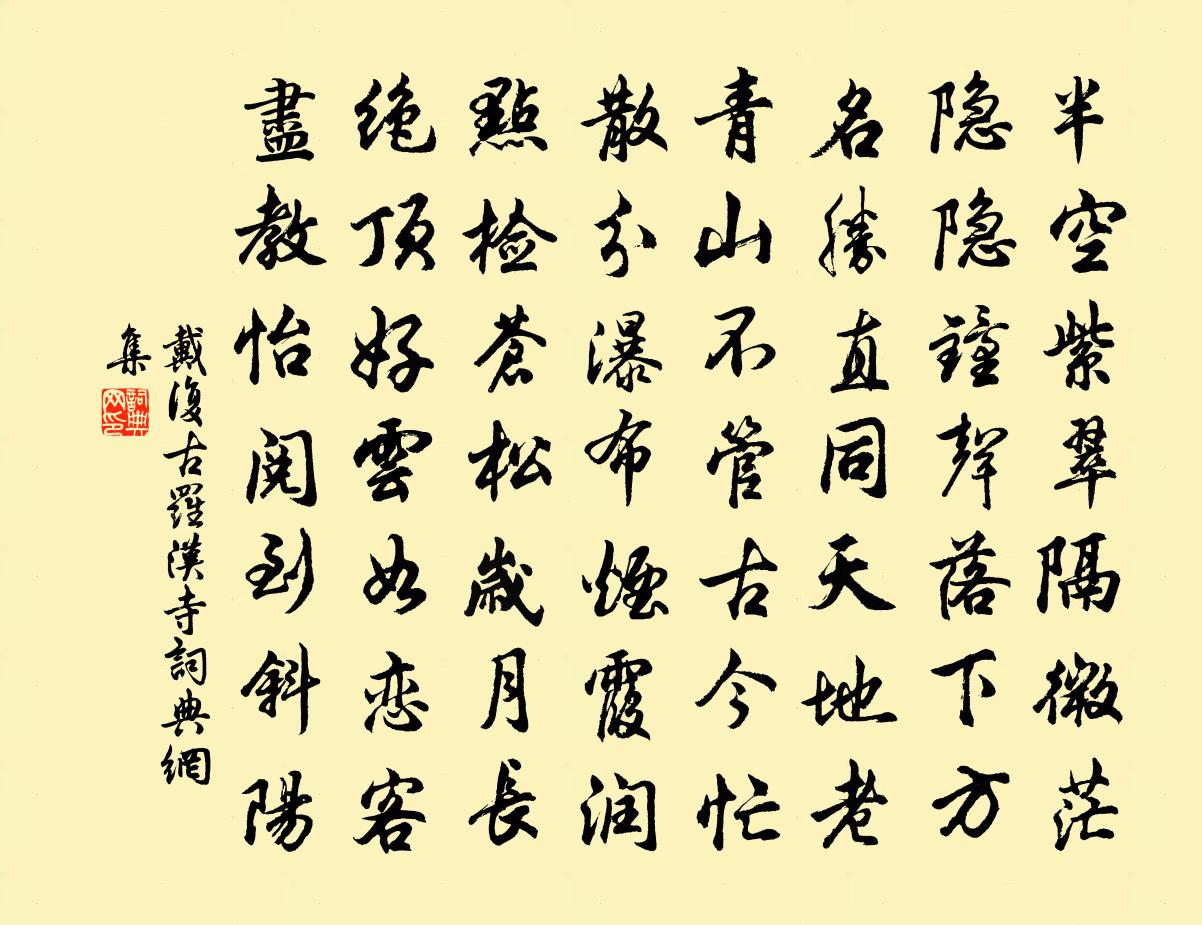 半空紫翠隔微茫
隐隐鐘聲落下方
名勝直同天地老
青山不管古今忙
散分瀑布煙霞润
點检蒼松歲月長
绝顶好雲如恋客
盡教怡阅到斜陽
戴復古羅漢寺詞典網
集
詞典网印